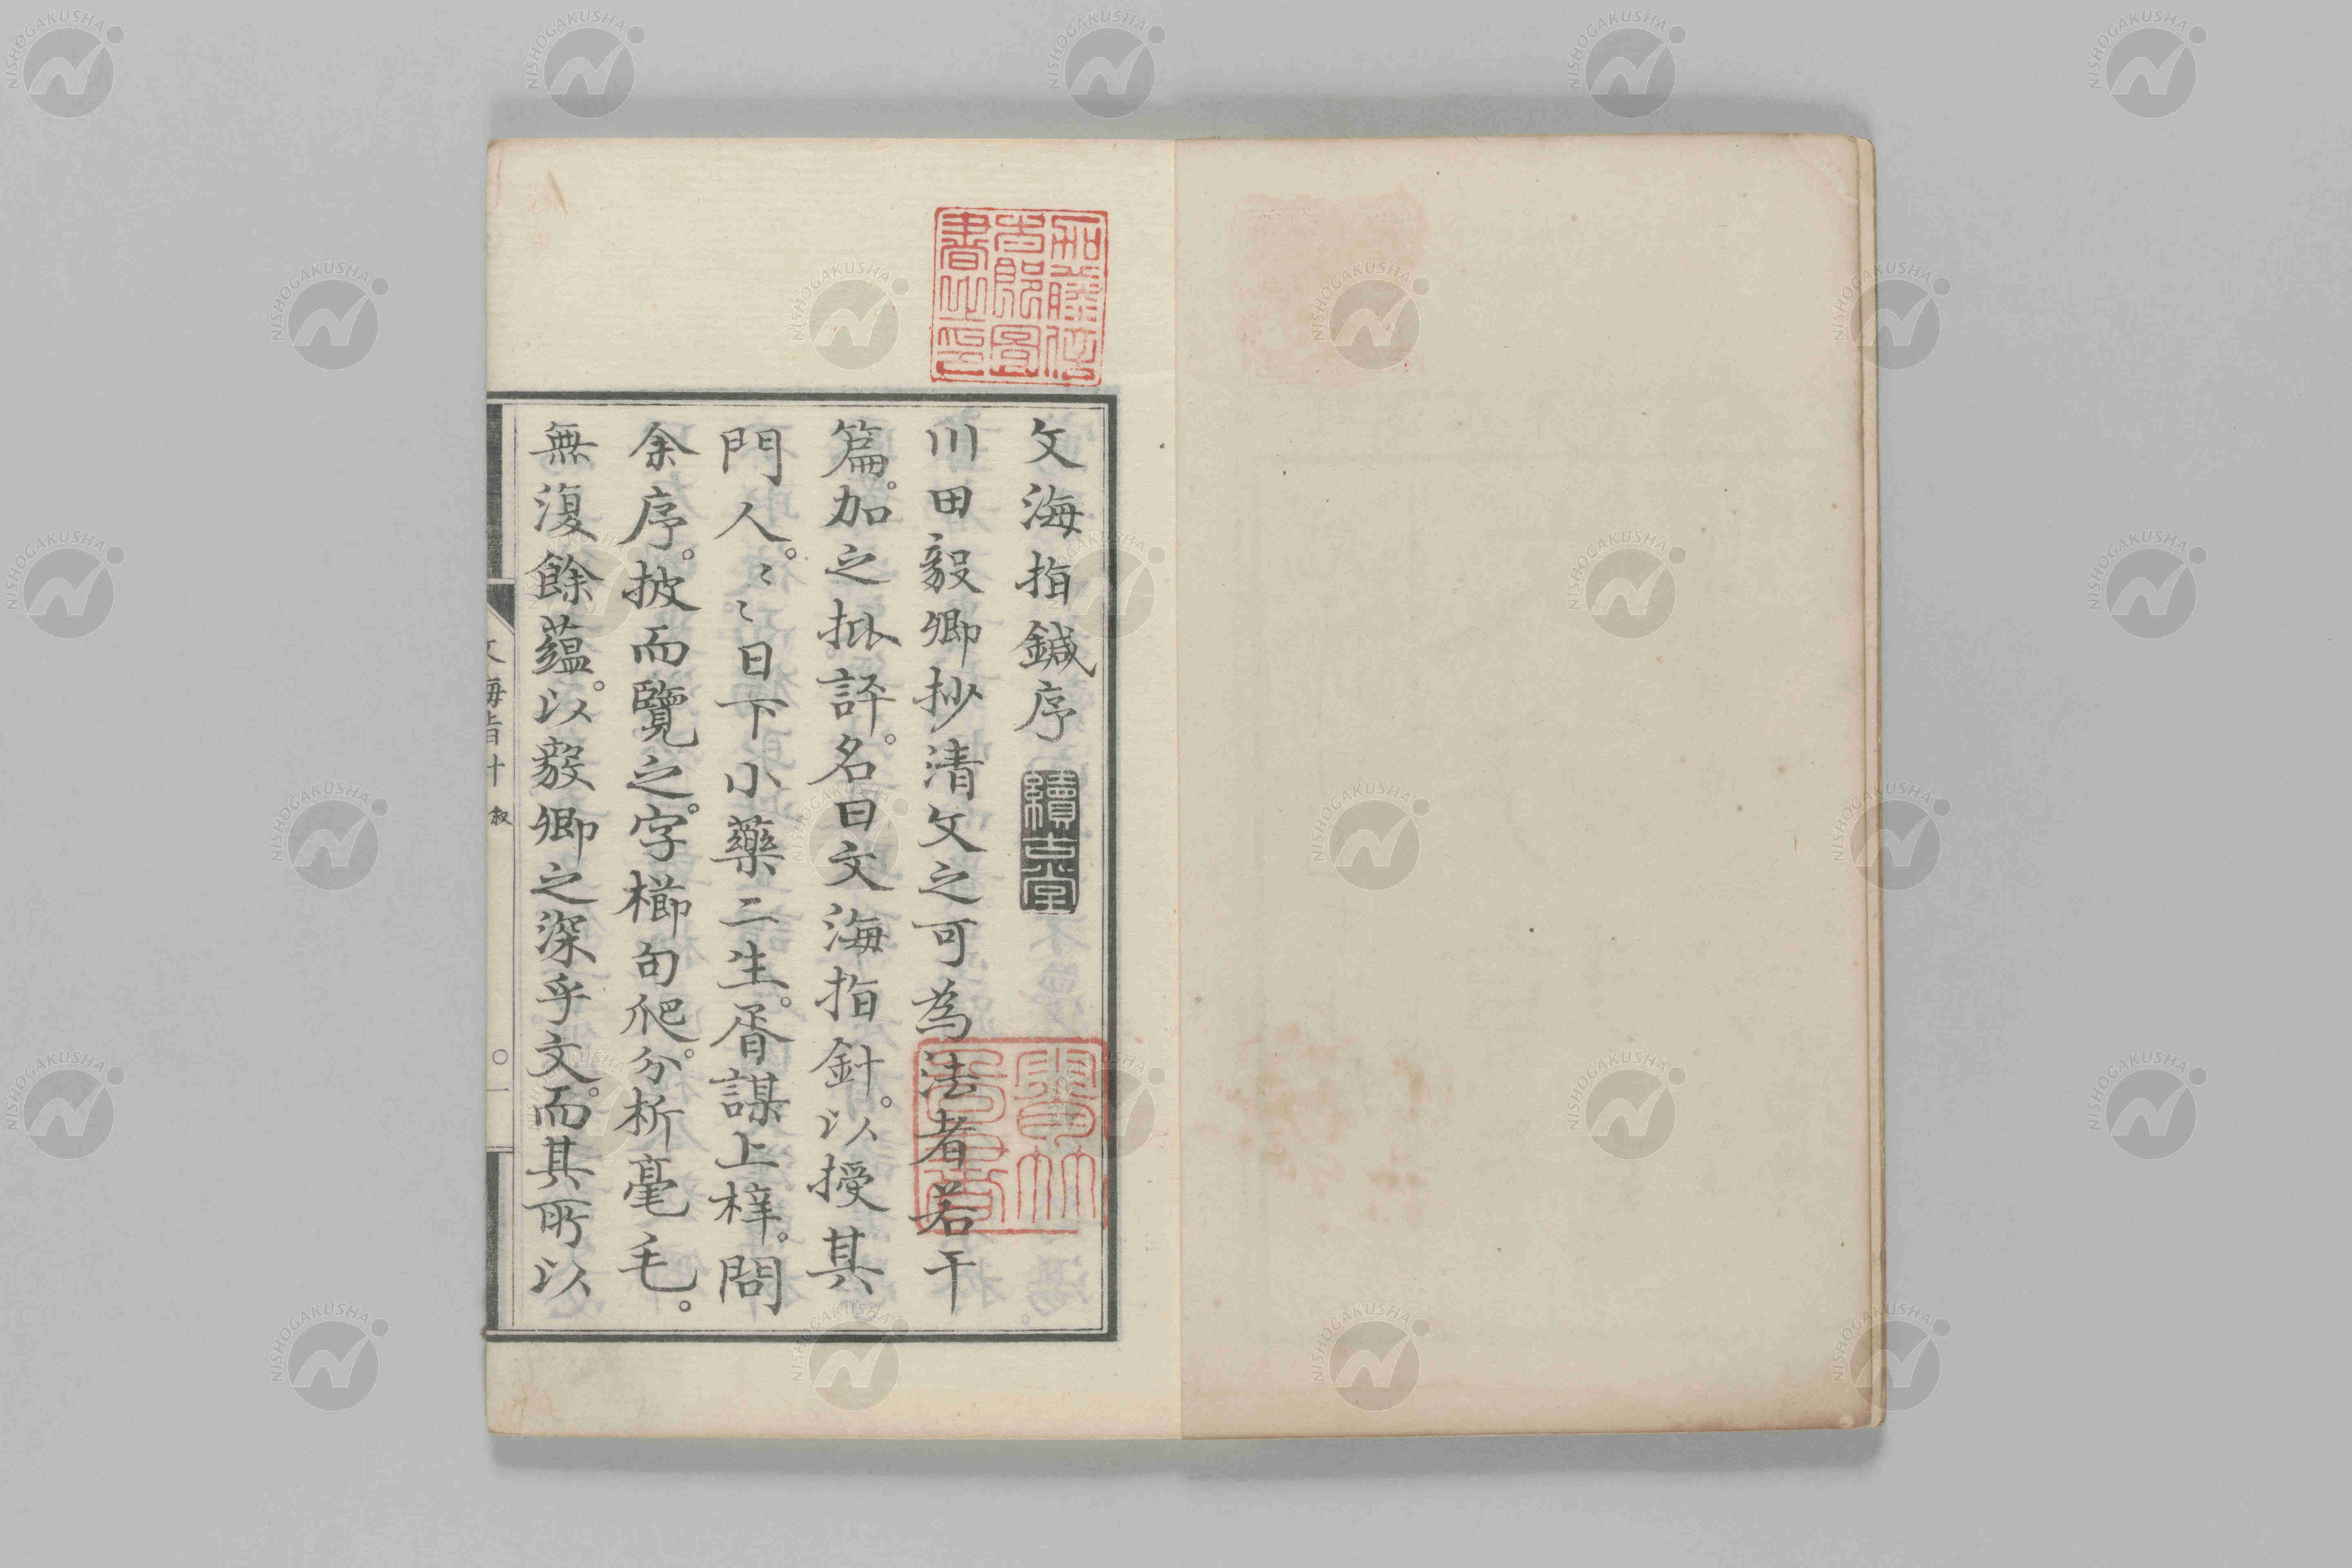 文海指鍼序
川田毅卿抄清文之可為法者若干
篇。加之批評。名曰文海指針。以授其
門人。〻〻日下小藥二生。胥謀上梓。問
余序。披而覽之。字櫛句爬。分析毫毛。
無復餘蘊。以毅卿之深乎文。而其所以
文海指十 叙
〇一
NISHOGAKUSHA